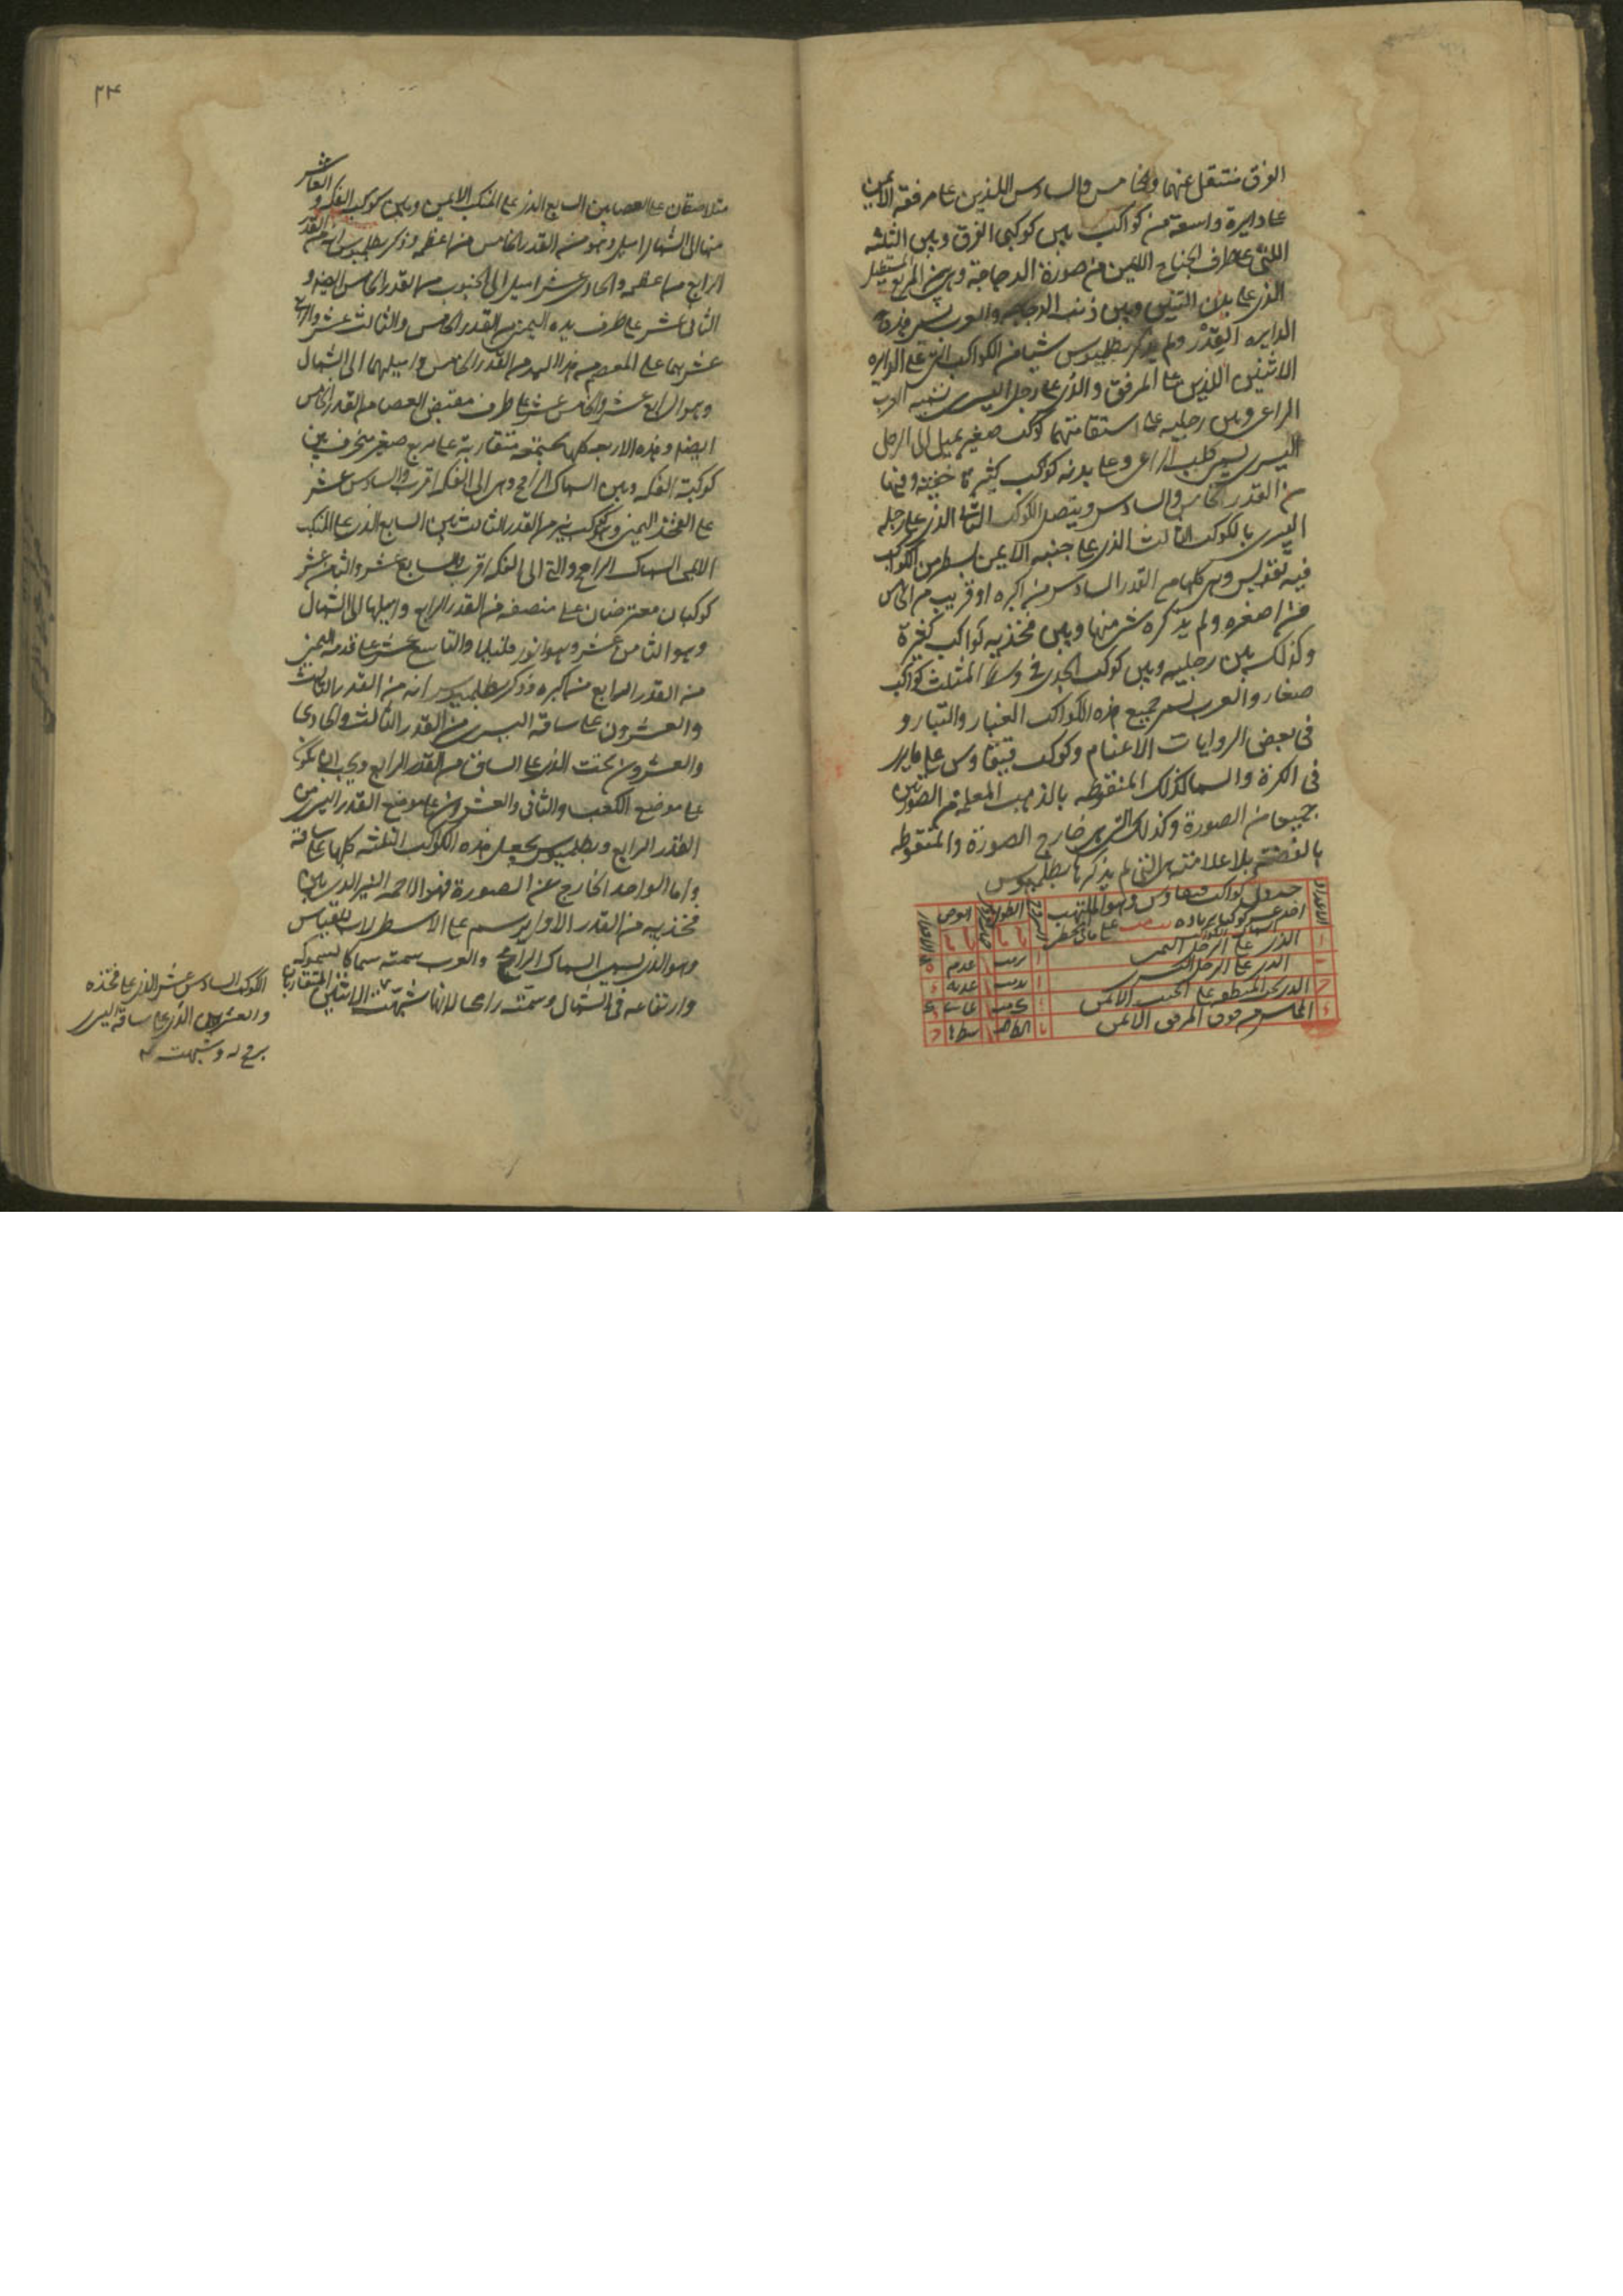 الفرق منتقل عنهما والخامس والسادس اللذين على مرفقه الايمن
على دايرة واسعة من كواكب بين كوكبى الفرق وبين الثلثة
اللتى على طرف الجناح الايمن من صورة الدجاجة وبين المربع المستطيل
الذى على بدن التنين وبين ذنب الدجاجه والعرب تسمى هذه
الدايره القدر ولم يذكر بطلميوس شيا من الكواكب التى على الدايره
الاثنين اللذين على المرفق والذى على رجل اليسرى تسميه العرب
الراعى وبين رجليه على استقامتهما كوكب صغير يميل الى الرجل
اليسرى يسمى كلب الراعى وعلى بدنه كواكب كثيرة خفيه وفيها
من القدر الخامس والسادس ويتصل الكوكب الثانى الذى على رجله
اليسرى بالكوكب الثالث الذى على جنبه الايمن بسطر من الكواكب
فيه تقويس وهى كلها من القدر السادس من اكبره او قريب من الخامس
من اصغره ولم يذكره شى منها وبين فخذيه كواكب كثيرة
وكذلك بين رجليه وبين كوكب الجدى فى وسط المثلث كواكب
صغار والعرب تسمى جميع هذه الكواكب الغبار والتبار و
فى بعض الروايات الاغنام وكوكب قيقاوس على ما يرى
فى الكرة والسما كذلك المنقوطه بالذهب المعلمة من الصورتين
جميعا من الصورة وكذلك التى من خارج الصورة والمنقوطه
بالفضة بلا علامة هى التى لم يذكرها بطلميوس
جدول كواكب قيقاوس وهو الملتهب
احد عشر كوكبا بزياده على ما فى المجسطى
الطول
العرض
اسماء الكواكب
الذى على الرجل اليمنى
الذى على الرجل اليسرى
الذى تحت المنطقه على الجنب الايمن
المماس من فوق المرفق الايمن
٢٤
متلاصقان على العصا بين السابع الذى على المنكب الايمن وبين كوكب الفكه و العاشر
منها الى الشمال اميل وهو من القدر الخامس من اعظمه وذكر بطلميوس انه من القدر
الرابع من اعظمه والحادى عشر اميل الى الجنوب من القدر الخامس ايضا و
الثانى عشر على طرف يده اليمنى من القدر الخامس والثالث عشر والرابع
عشر هما على المعصم من هذا اليد من القدر الخامس واميلهما الى الشمال
وهو الرابع عشر والخامس عشر على طرف مقبض العصا من القدر الخامس
ايضا وهذه الاربعه كلها مجتمعه متقاربه على مربع صغير منحرف بين
كوكبة الفكه وبين السماك الرامح وهى الى الفكه اقرب والسادس عشر
على الفخذ اليمنى وهو كوكب نير من القدر الثالث بين السابع الذى على المنكب
الايمن السماك الرامح والى الفكه اقرب والسابع عشر والثامن عشر
كوكبان معترضان على منصفه من القدر الرابع واميلها الى الشمال
وهو الثامن عشر وهو انور قليلا والتاسع عشر على قدمه اليمنى
من القدر الرابع من اكبره وذكر بطلميوس انه من القدر الثالث
والعشرون على ساقه اليسرى من القدر الثالث والحادى
والعشرون تحت الذى على الساق من القدر الرابع ويجب ان يكون
على موضع الكعب والثانى والعشرون على موضع القدم اليسرى من
القدر الرابع وبطلميوس يجعل هذه الكواكب الثلثه كلها على ساقه
واما الواحد الخارج عن الصورة فهو الاحمر النير الذى بين
فخذيه من القدر الاول يرسم على الاسطرلاب للقياس
وهو الذى يسمى السماك الرامح والعرب سمته سماكا لسموكه
وارتفاعه فى الشمال وسمته رامحا لانها شبهت الاثنين المتقاربان
الكوكب السادس عشر الذى على فخذه
والعشرين الذى على ساقه اليسرى
برمح له وشبهت